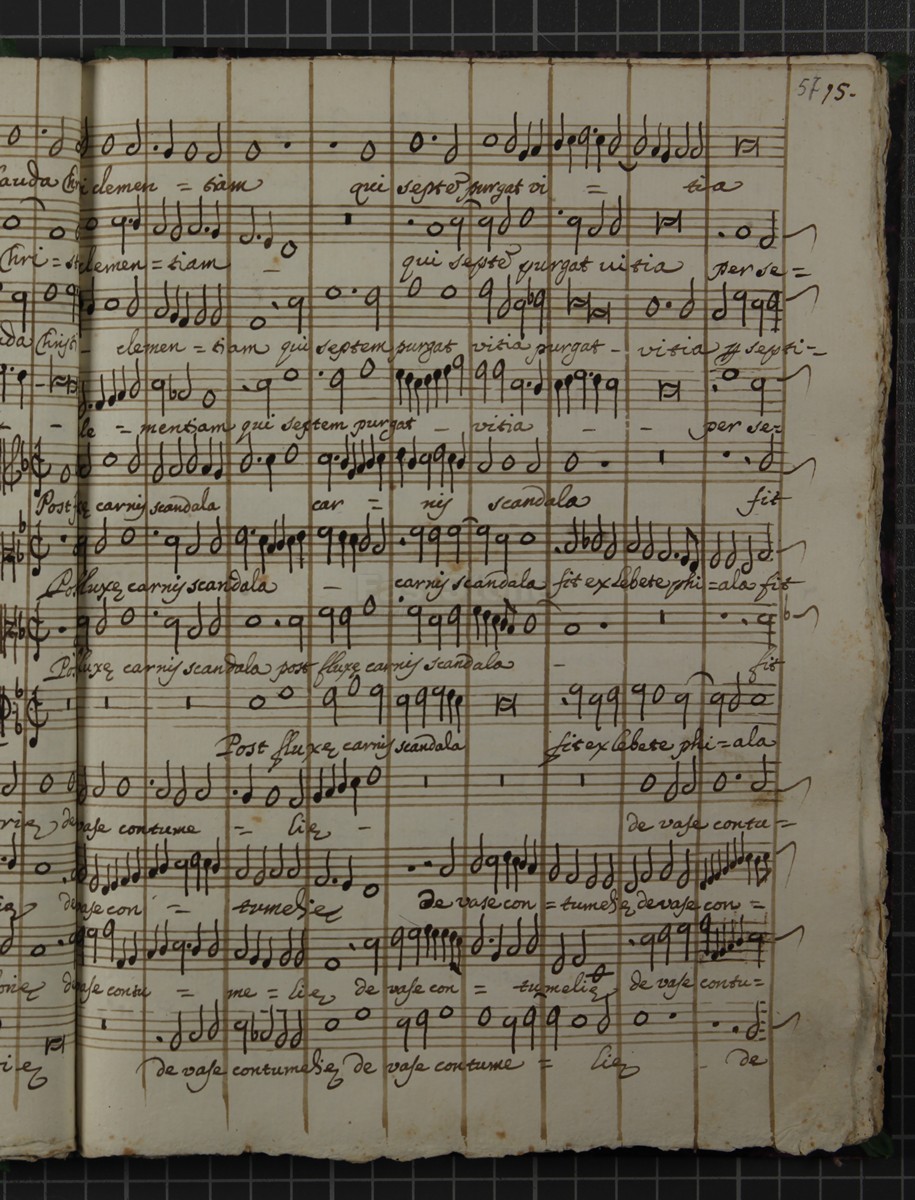 57 15.
lauda Chri clemen = tiam qui septẽ purgat vi = tia
Chri = sti clemen = tiam - qui septẽ purgat vitia per se =
uda Christi - clemen = tiam qui septem purgat vitia purgat - vitia septi -
- - cle = mentiam qui septem purgat - vitia - - per se =
Post carnis scandala car = nis scandala fit
Post fluxę carnis scandala - carnis scandala fit ex lebete phi = ala fit
Post fluxę carnis scandala post fluxę carnis scandala - fit
Post fluxę carnis scandala fit ex lebete phi = ala
de vase contume = lię - de vase contu =
de vase con = tumelię de vase con = tumelię de vase con =
de vase contu = me = lię de vase con = tumelię de vase contu =
de vase contumelię de vase contume = lię - de